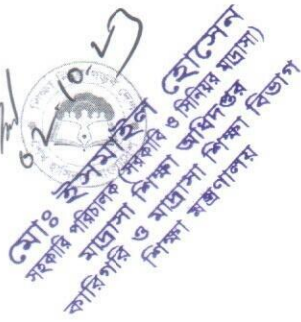 ০২.১০
মোঃ ইসমাইল হোসেন
সহকারি পরিচালক (সরকারি ও সিনিয়র মাদ্রাসা)
মাদ্রাসা শিক্ষা অধিদপ্তর
কারিগরি ও মাদ্রাসা শিক্ষা বিভাগ
শিক্ষা মন্ত্রণালয়